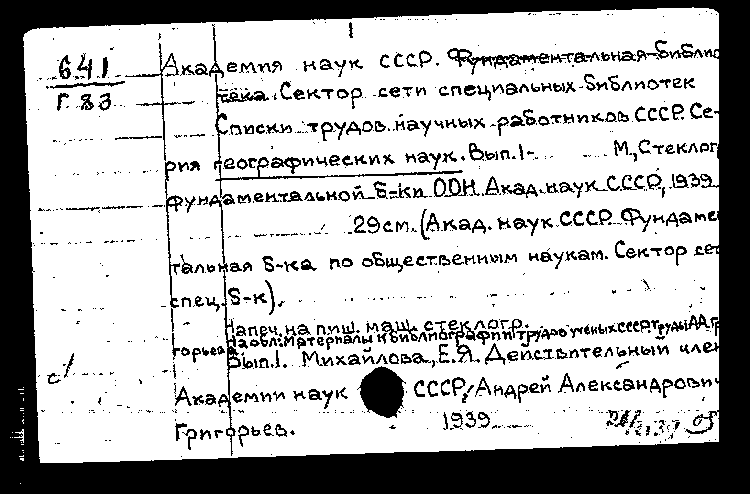 641
Г 83
Академия наук СССР. Фундаментальная библио
тека. Сектор сети специальных библиотек
Списки трудов научных работников СССР. Се-
рия географических наук. Вып.1- М., Стеклогр
фундаментальной б-ки ООН Акад. наук СССР, 1939
29см. (Акад. наук СССР. Фундамен
тальная б-ка по общественным наукам. Сектор сет
спец. б-к).
Напеч. на пиш. маш. стеклогр.
На обл: Материалы к библиографии трудов ученых СССР. Труды А.А. Гри
горьева
Вып.1. Михайлова, Е.Я. Действительный член
Академии наук СССР, Андрей Александрович
Григорьев. 1939